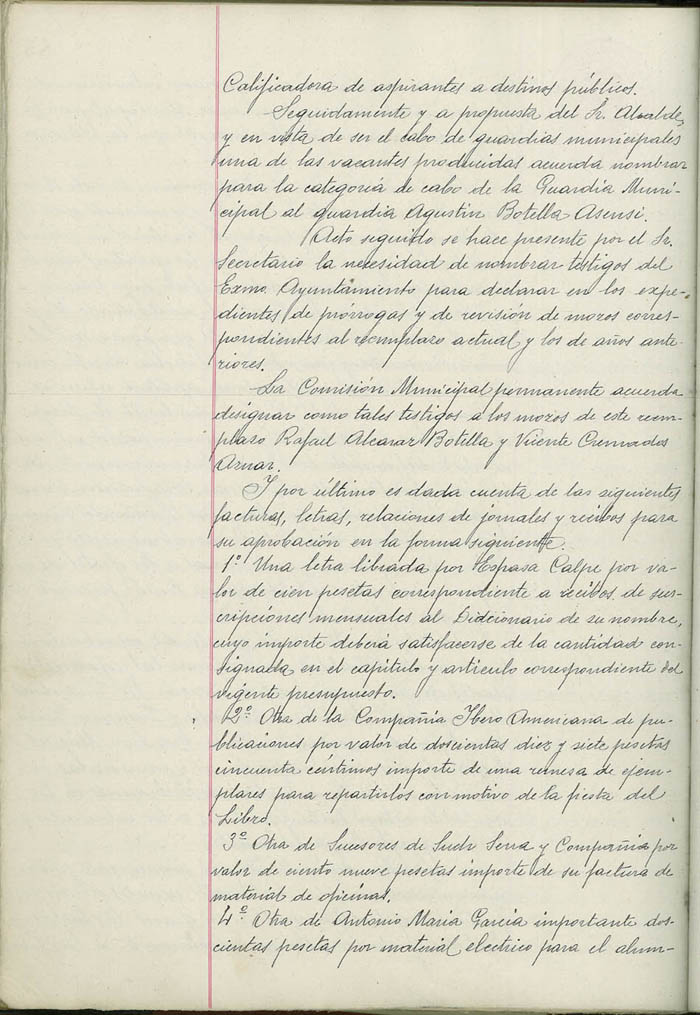 Calificadora de aspirantes a destinos públicos.
Seguidamente y a propuesta del Sr. Alcalde,
y en vista de ser el cabo de guardias municipales
una de las vacantes producidas acuerda nombrar
para la categoría de cabo de la Guardia Muni-
cipal al guardia Agustín Botella Asensi.
Acto seguido se hace presente por el Sr.
Secretario la necesidad de nombrar testigos del
Exmo. Ayuntamiento para declarar en los expe-
dientes de prórrogas y de revisión de mozos corres-
pondientes al reemplazo actual y los de años ante-
riores.
La Comisión Municipal permanente acuerda
designar como tales testigos a los mozos de este reem-
plazo Rafael Alcaraz Botella y Vicente Cremades
Aznar.
Y por último es dada cuenta de las siguientes
facturas, letras, relaciones de jornales y recibos para
su aprobación en la forma siguiente.
1º Una letra librada por Espasa Calpe por va-
lor de cien pesetas correspondiente a recibos de sus-
cripciones mensuales al Diccionario de su nombre,
cuyo importe deberá satisfacerse de la cantidad con-
signada en el capítulo y artículo correspondiente del
vigente presupuesto.
2º Otra de la Compañía Ibero Americana de pu-
blicaciones por valor de doscientas diez y siete pesetas
cincuenta céntimos importe de una remesa de ejem-
plares para repartirlos con motivo de la fiesta del
Libro.
3º Otra de Sucesores de Such Serra y Compañía por
valor de ciento nueve pesetas importe de su factura de
material de oficinas.
4º Otra de Antonio María García importante dos-
cientas pesetas por material electrico para el alum-